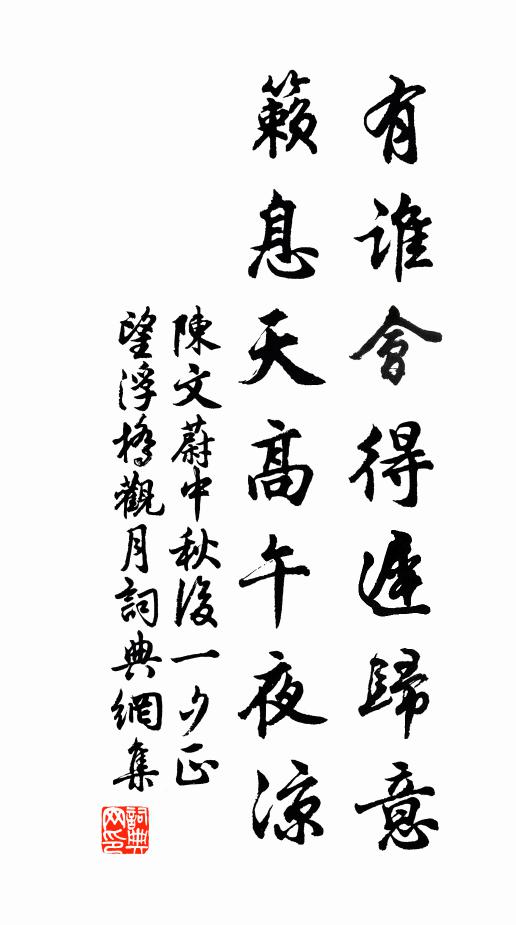 有誰會得遲歸意
籟息天高午夜涼
陳文蔚中秋後一夕正
望浮橋觀月詞典網集
詞典
網印